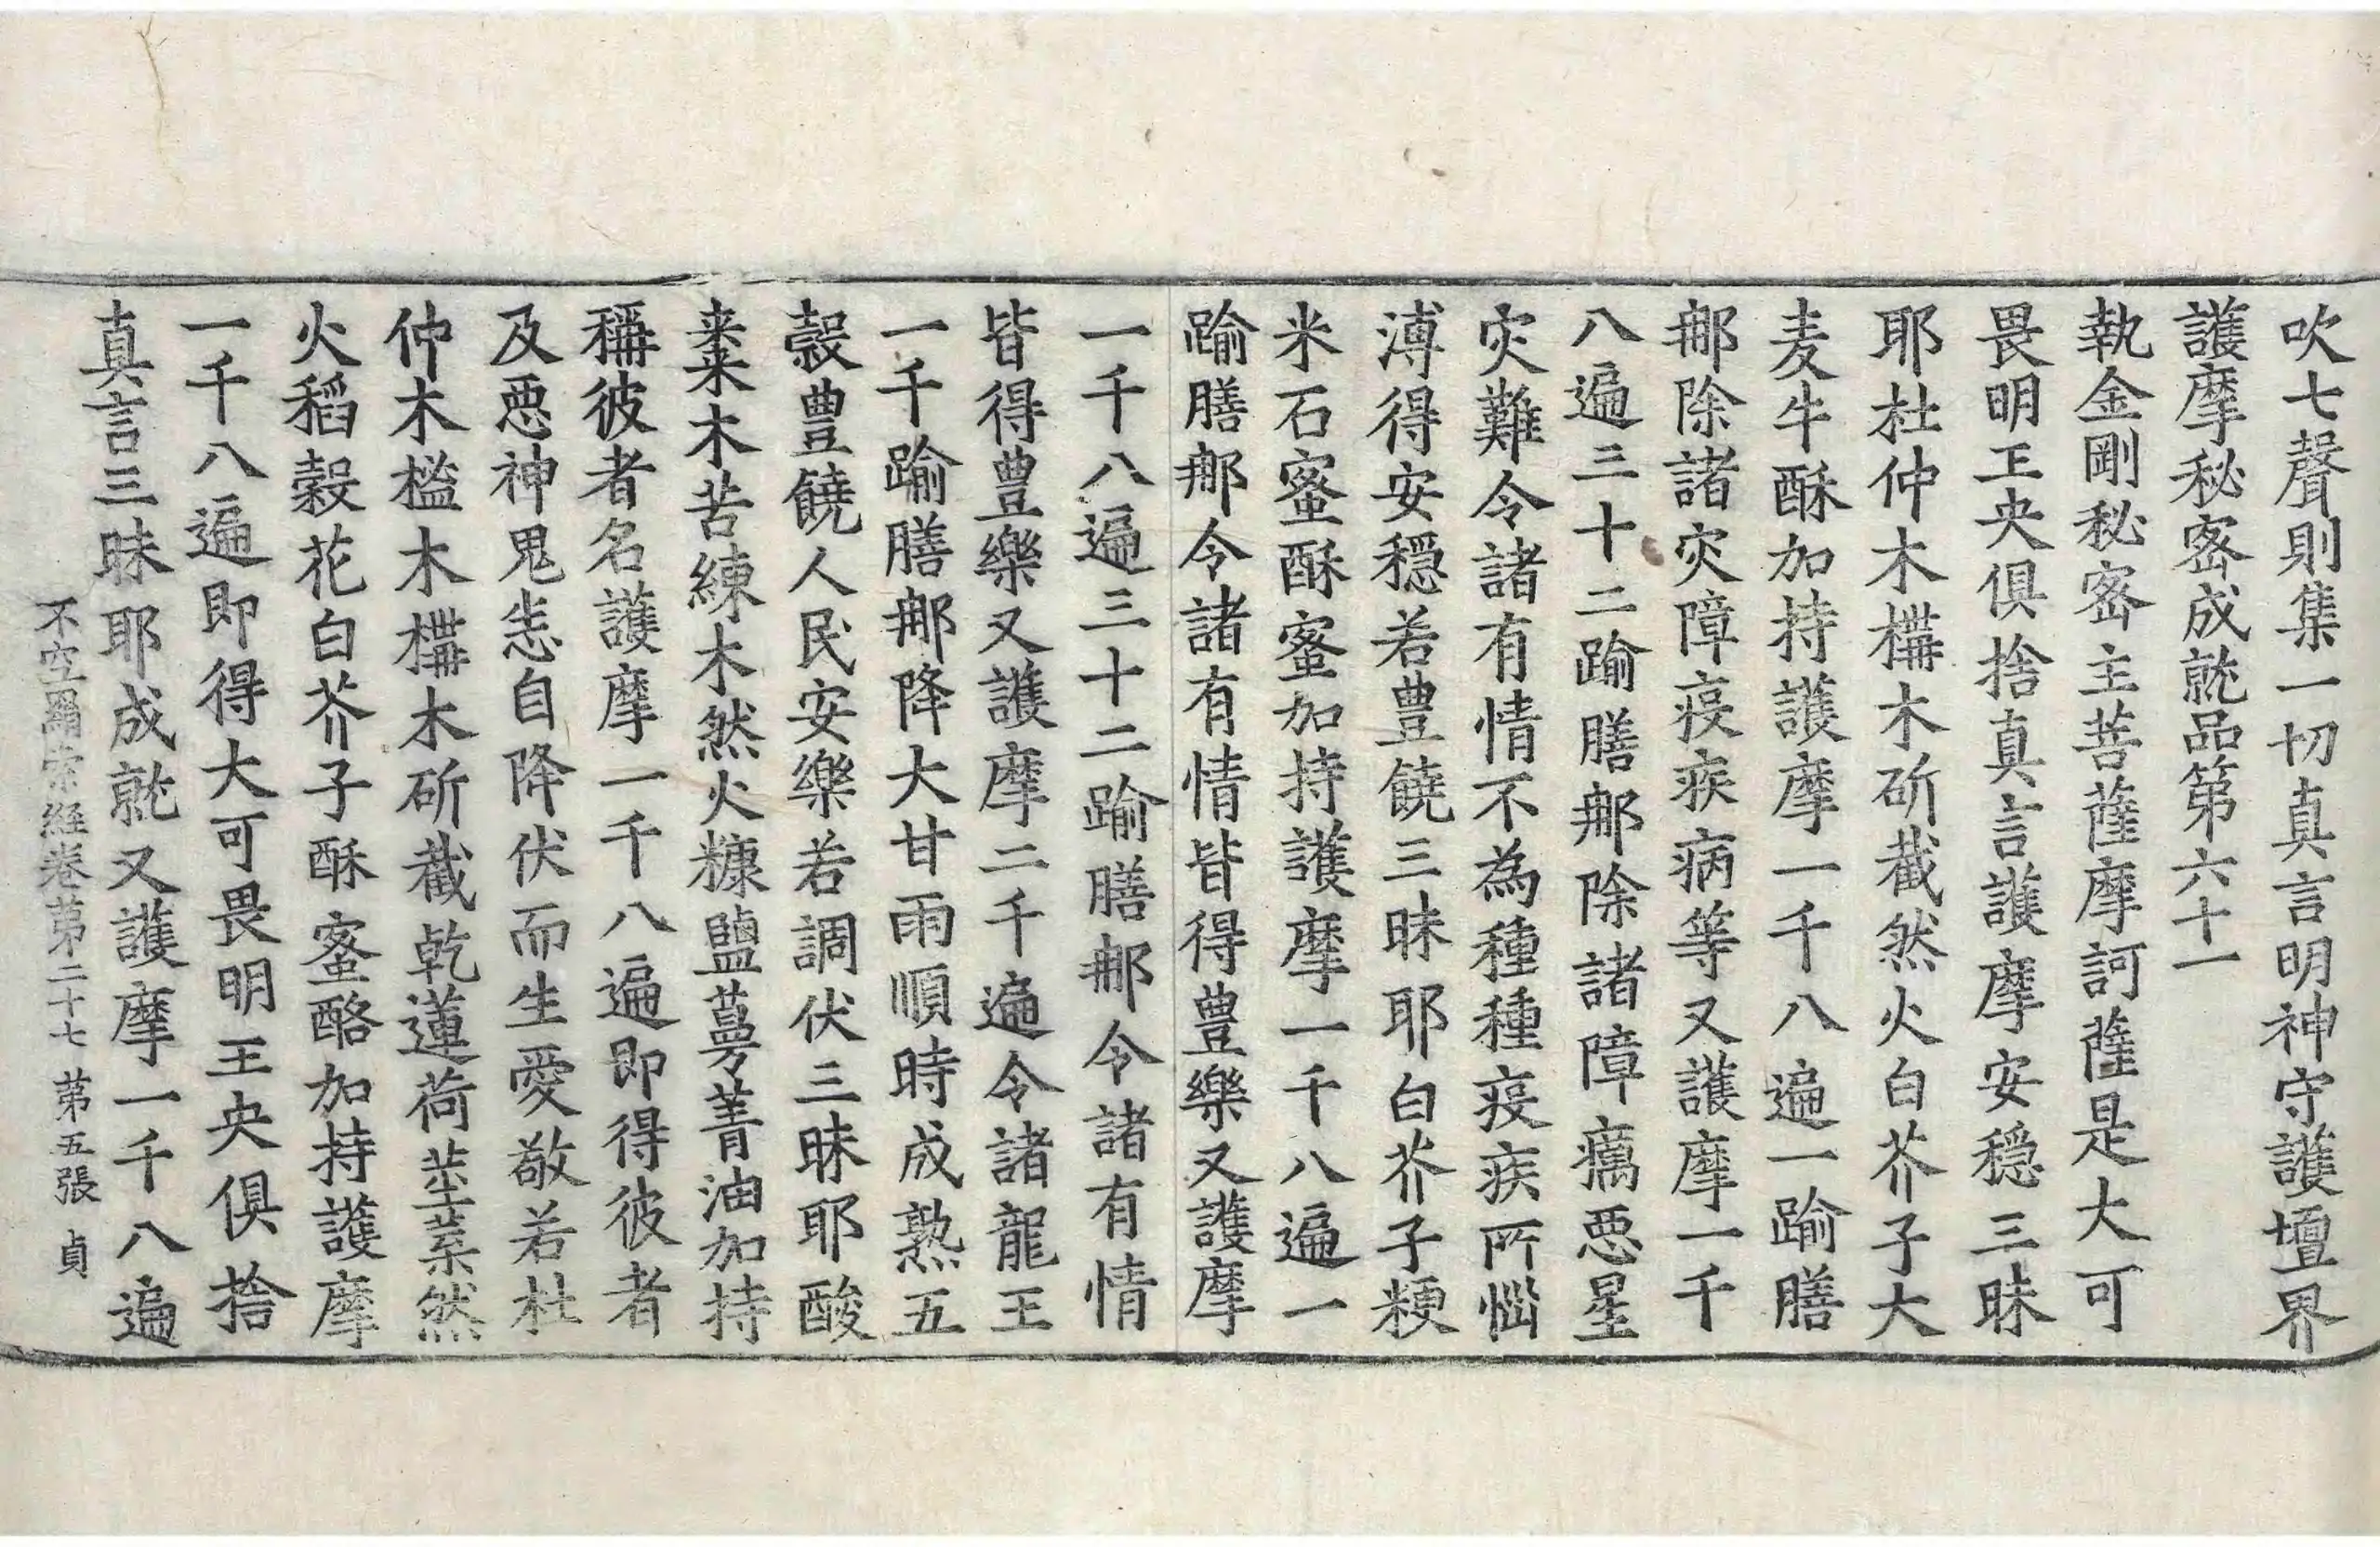 吹七聲則集一切真言明神守護壇界
護摩秘密成就品第六十一
執金剛秘密主菩薩摩訶薩是大可
畏明王央俱捨真言護摩安穩三昧
耶杜仲木構木斫截然火白芥子大
麦牛酥加持護摩一千八遍一踰膳
那除諸灾障疫疾病等又護摩一千
八遍三十二踰膳那除諸障癘惡星
灾難令諸有情不為種種疫疾所惱
溥得安穩若豊饒三昧耶白芥子粳
米石蜜酥蜜加持護摩一千八遍一
踰膳那令諸有情皆得豊樂又護摩
一千八遍三十二踰膳那令諸有情
皆得豊樂又護摩二千遍令諸龍王
一千踰膳那降大甘雨順時成熟五
穀豊饒人民安樂若調伏三昧耶酸
棗木苦練木然火糠鹽蔓菁油加持
稱彼者名護摩一千八遍即得彼者
及惡神鬼恚自降伏而生愛敬若杜
仲木榓木構木斫截乾蓮荷莖葉然
火稻穀花白芥子酥蜜酪加持護摩
一千八遍即得大可畏明王央俱捨
真言三昧耶成就又護摩一千八遍
不空羂索經卷第二十七 第五張 貞